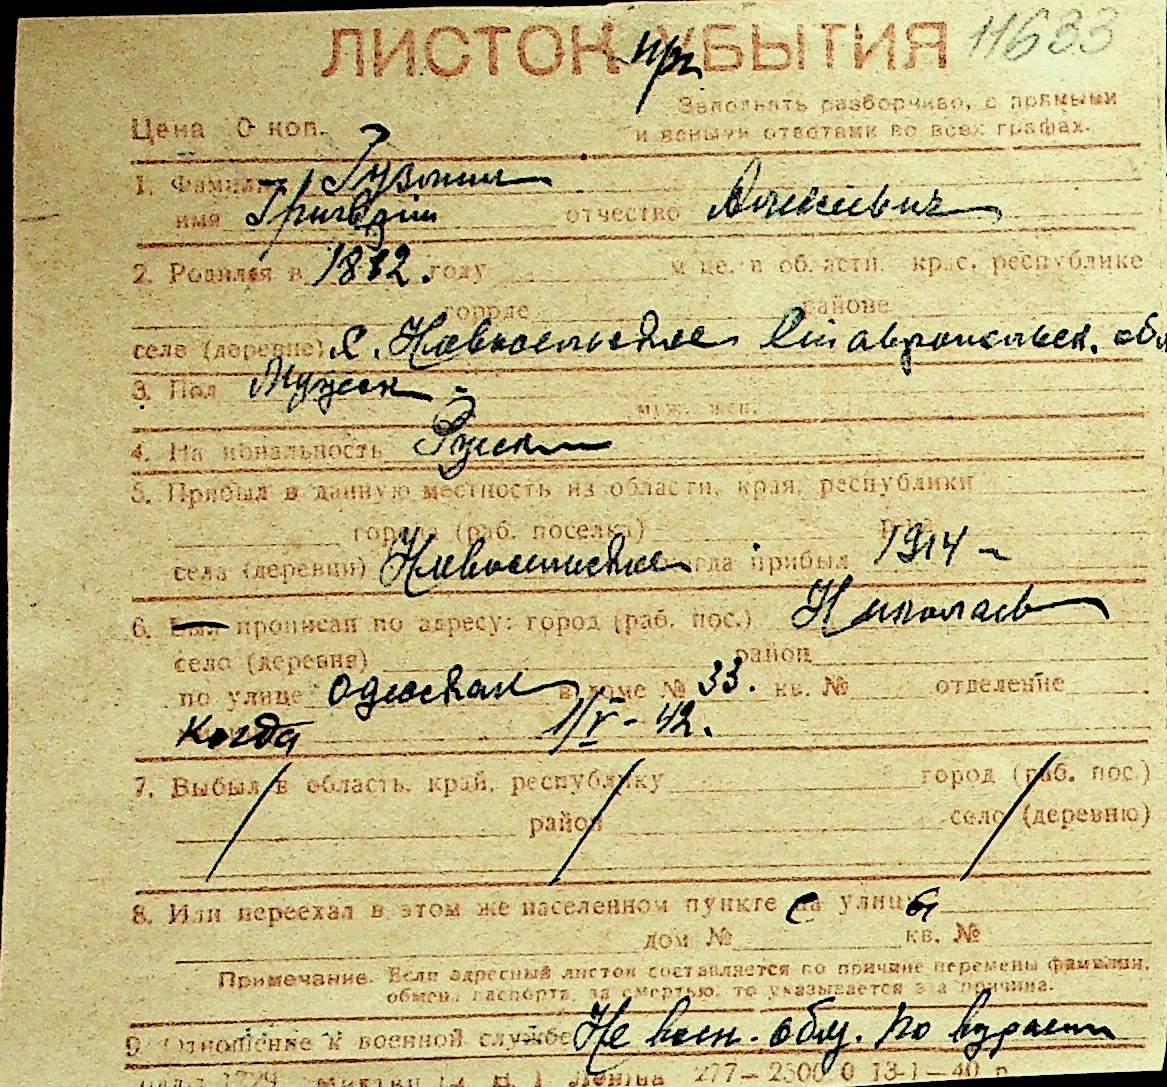 ЛИСТОК при УБЫТИЯ 11633
Заполнять разборчиво, с прямыми
Цена 0 коп. и ясными ответами во всех графах.
1. Фамилия
имя Григорий отчество Алексеевич
2. Родился в 1882. году м-це, в области, крае, республике
городе районе
село (деревне) с. Ставропольск. обл
3. Пол Мужск
муж. жен.
4. Национальность Русск
5. Прибыл в данную местность из области, края, республики
города (раб. поселка) р-на
села (деревни) когда прибыл 1914 -
6. Был прописан по адресу: город (раб. пос.) Николаев
село (деревня) район
по улице одесская в доме № 33. кв. № отделение
Когда 1/V - 42.
7. Выбыл в область, край, республику город (раб. пос.)
район село (деревню)
8. Или переехал в этом же населенном пункте с на улицу
дом № кв. №
Примечание. Если адресный листок составляется по причине перемены фамилии,
обмена паспорта, за смертью, то указывается эта причина.
9 Отношение к военной службе Не воен. обяз. по возрасту
Ленина 277— 2500 0 13-1—40 г.